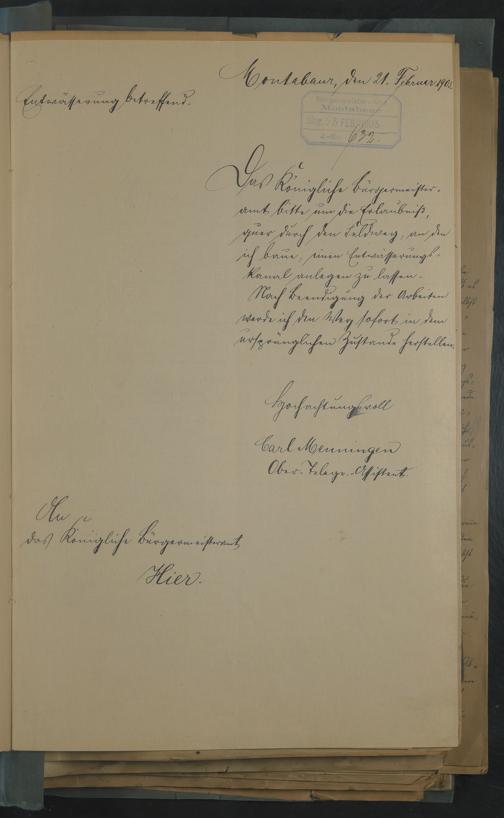 Montabaur, den 21. Februar 190
Entwässerung betreffend.
Bürgermeisteramt
Montabaur
FEB.
632.
Das Königliche Bürgermeister-
amt bitte um die Erlaubniß,
quer durch den Feldweg, an dem
ich baue, einen Entwässerungs-
kanal anlegen zu lassen.
Nach Beendigung der Arbeiten
werde ich den Weg sofort in dem
ursprünglichen Zustande herstellen.
Hochachtungsvoll
Carl Menningen
Ober-Telegr.-Assistent
An
das Königliche Bürgermeisteramt
Hier.